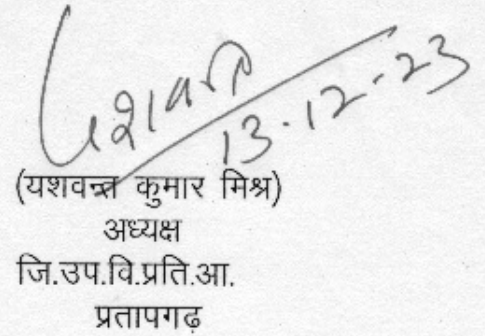 यशवन्त
13-12-23
(यशवन्त कुमार मिश्र)
अध्यक्ष
जि.उप.वि.प्रति.आ.
प्रतापगढ़